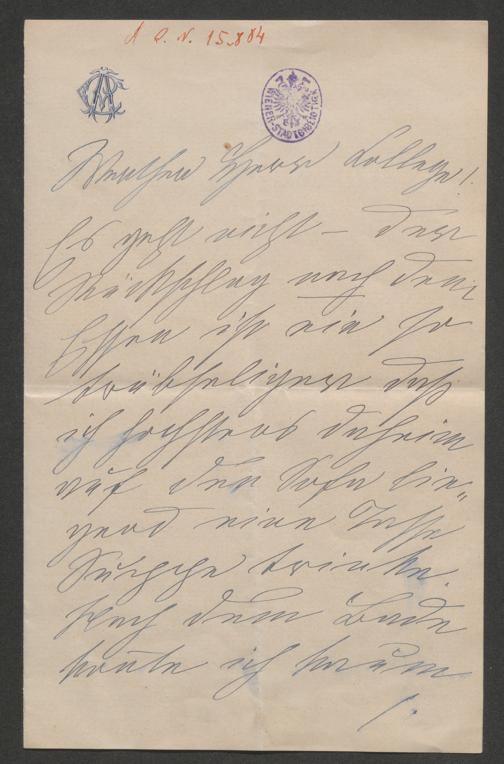 A Q. N. 15.884
WIENER-STADTBIBLIOTHEK
Werther Herr College!
Es geht nicht – der
Rückschlag nach dem
Essen ist ein so
trübseliger daß
ich höchstens daheim
auf den Sofa lie„
gend eine Tasse
Suppe trinke.
Nach dem Bade
konnte ich kaum
/.